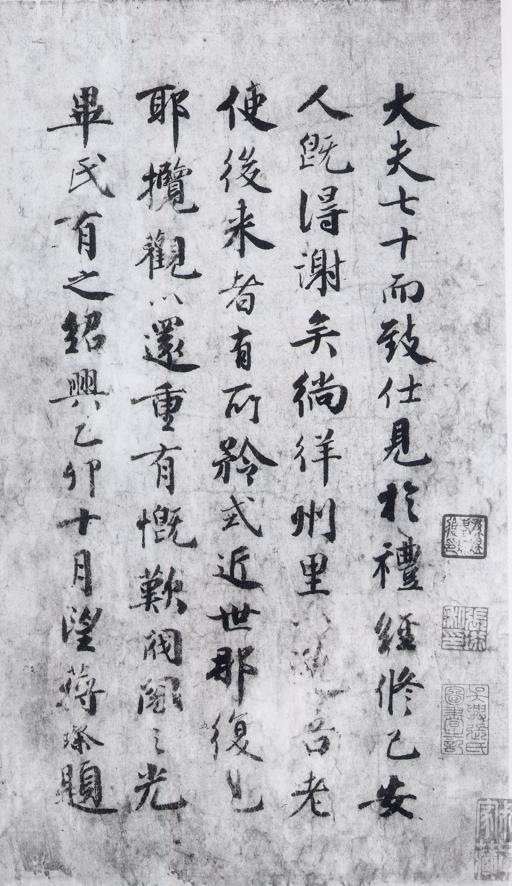 大夫七十而致仕見於禮經修己安
人既得謝矣徜徉州里以老
使後来者有所矜式近世那復見
耶攬觀以還重有慨歎閥閲之光
畢氏有之紹興乙卯十月望蔣璨題